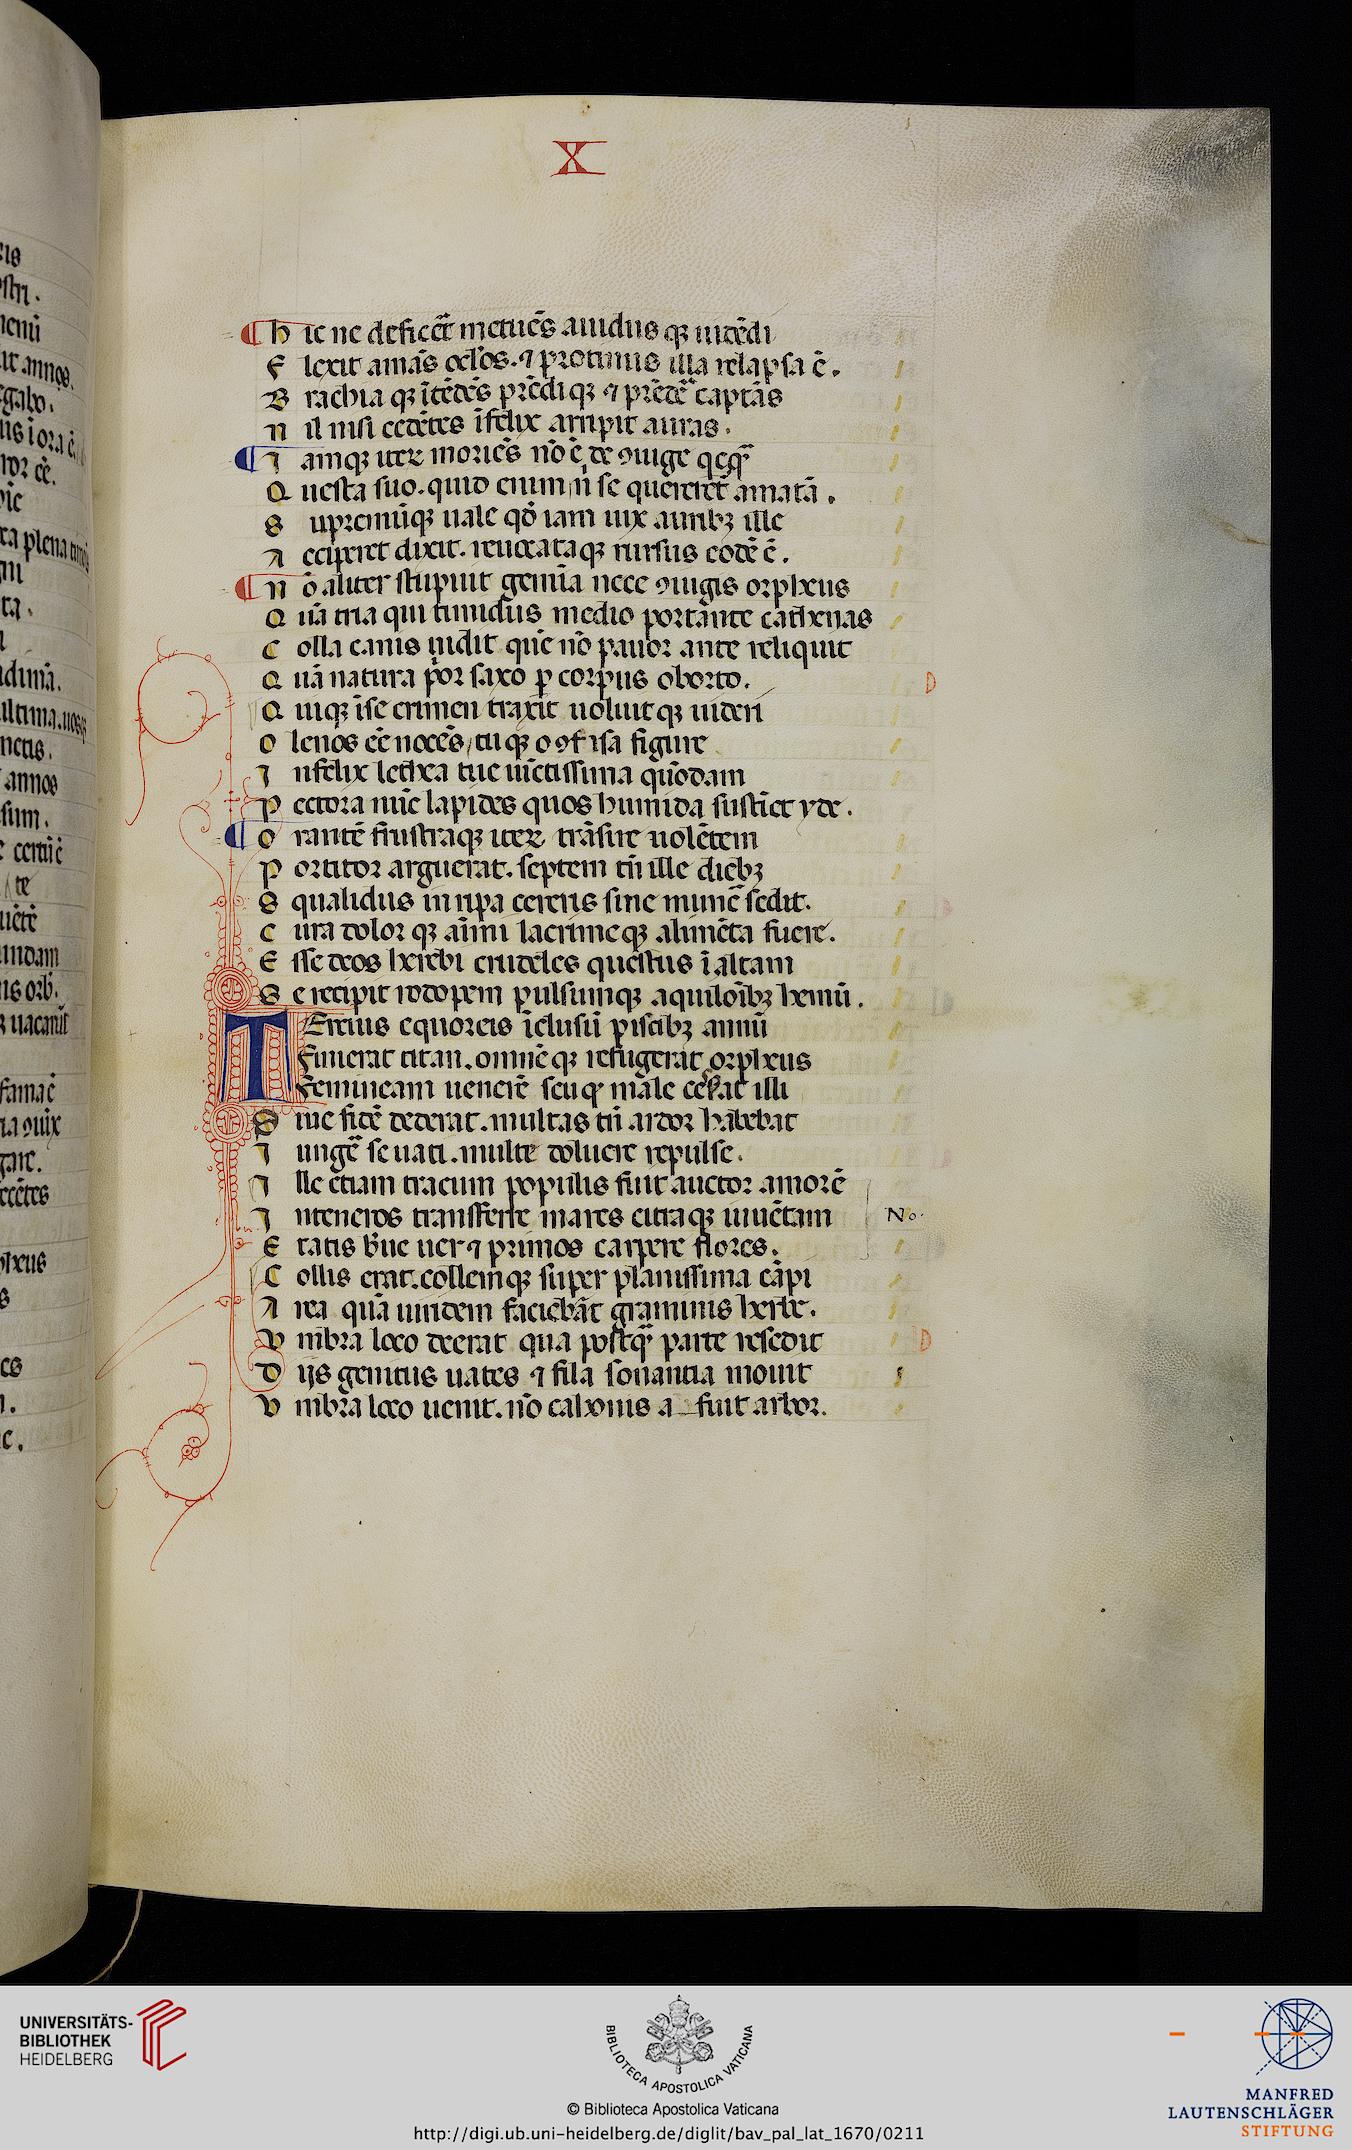 X
¶ h ic ne deficeret metuēs auidus qꝫ uidēdi
F lexit amās oclōs. ⁊ protinus illa relapsa ē.
B rachia qꝫ ītēdēs prēdi qꝫ ⁊ prēdē captās
n il nisi cedētes īfelix arripit auras.
¶ i amqꝫ iteꝝ moriēs nō ē de ꝯiuge qcq̄
Q uesta suo. quid enim n̄ se quereret̄ amatā.
S upremūqꝫ uale qḋ iam uix auribꝫ ille
A cciperet dixit. reuocataqꝫ rursus eodē ē.
¶ n ō aliter stupuit gemīa nece ꝯiugis orpheus
Q uā tria qui timidus medio portante cathenas
C olla canis uidit quē nō pauor ante reliquit
Q uā natura p̄or saxo ꝑ corpus oborto.
Q uiqꝫ īse crimen traxit uoluitqꝫ uideri
O lenos eē nocēs, tuqꝫ o ꝯfisa figure
I nfelix lethea tue uīctissima quōdam
P ectora nūc lapides quos humida sustīet yde.
¶ O rantē frustraqꝫ iteꝝ trāsire uolētem
P ortitor arguerat. septem tn̄ ille diebꝫ
S qualidus in ripa cereris sine munē sedit.
C ura dolor qꝫ aīmi lacrimeqꝫ alimēta fuere.
E sse deos herebi crudeles questus ī altam
S e recipit rodopem pulsumqꝫ aquiloībꝫ hemū.
TErtius equoreis īclusū piscibꝫ annū
Finierat titan. omnē qꝫ refugerat orpheus
Femineam uenerē seu qꝫ male cesserat illi
S iue fidē dederat. multas tn̄ ardor habebat
I ungē se uati. multe doluere repulse.
I lle etiam tracum populis fuit auctor amorē
I nteneros transferre mares citraqꝫ iuuētam No.
E tatis b̄ue uer ⁊ primos carpere flores.
C ollis erat. collemqꝫ super planissima cāpi
A rea quā uiridem faciebāt graminis herbe.
V mbra loco deerat qua postq̄ parte resedit
D ijs genitus uates ⁊ fila sonantia mouit
V mbra loco uenit. nō cahonis a_fuit arbor.
UNIVERSITÄTS-
BIBLIOTHEK
HEIDELBERG
BIBLIOTECA APOSTOLICA VATICANA
© Biblioteca Apostolica Vaticana
http://digi.ub.uni-heidelberg.de/diglit/bav_pal_lat_1670/0211
MANFRED
LAUTENSCHLÄGER
STIFTUNG